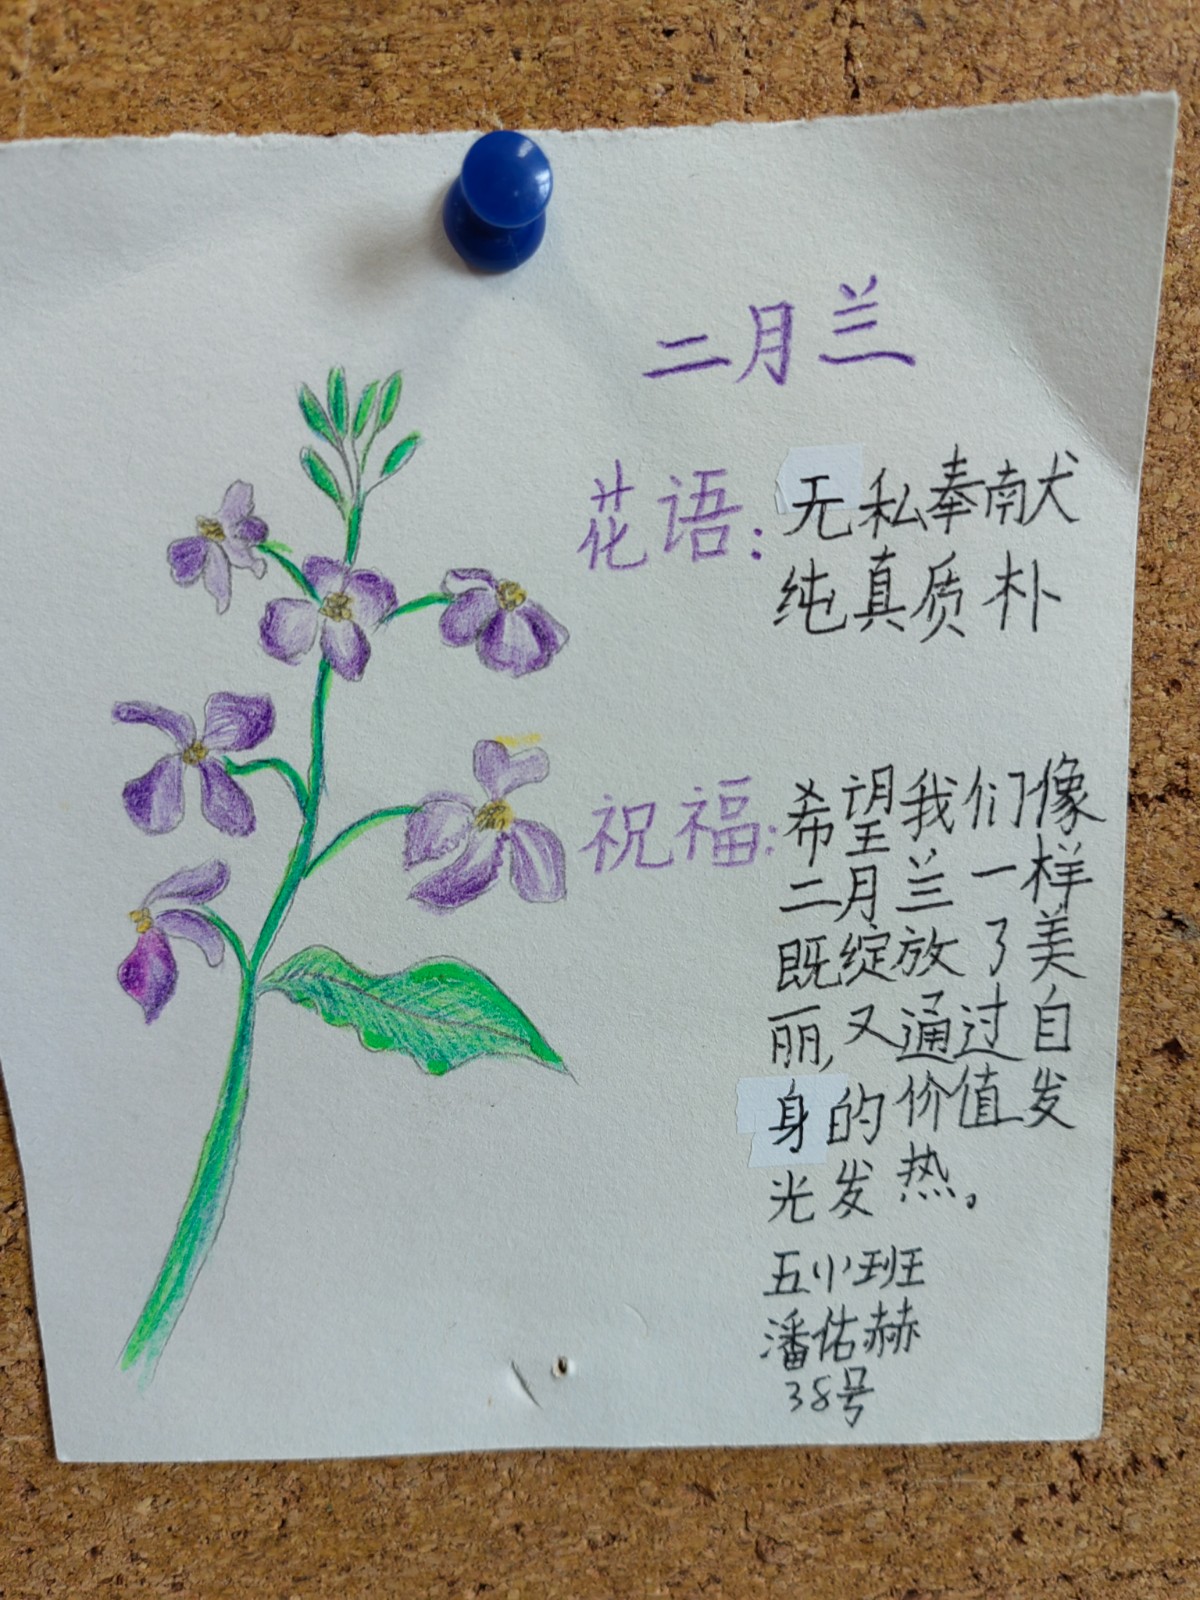 二月兰
花语:无私奉献
纯真质朴
祝福:希望我们像
二月兰一样
既绽放了美
丽,又通过自
身的价值发
光发热。
五小班
潘佑赫
38号